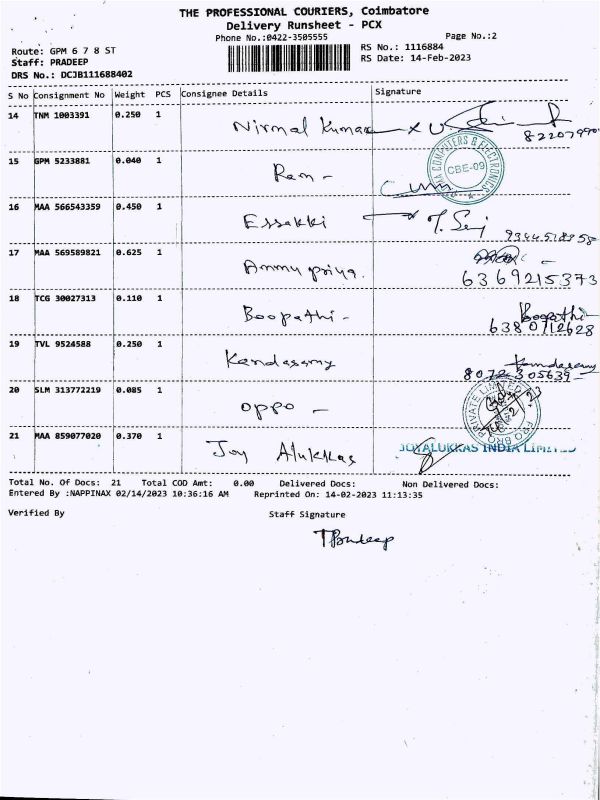 THE PROFESSIONAL COURIERS, Coimbatore
Delivery Runsheet - PCX
Phone No.:0422-3505555
Page No.:2
Route: GPM 6 7 8 ST
RS No.: 1116884
Staff: PRADEEP
RS Date: 14-Feb-2023
DRS No.: DCJB111688402
S No Consignment No Weight PCS Consignee Details Signature
14 TNM 1003391 0.250 1 Nirmal Kumar
15 GPM 5233881 0.040 1 Ram -
CBE-09
16 MAA 566543359 0.450 1 Essakki
17 MAA 569589821 0.625 1 Ammu priya. 6369215373
18 TCG 30027313 0.110 1 Boopathi - Boopathi 6380712628
19 TVL 9524588 0.250 1 Kandasamy Kandasamy 8072305639
20 SLM 313772219 0.085 1 oppo -
PRIVATE LIMITED
21 MAA 859077020 0.370 1 Joy Alukkas JOYALUKKAS INDIA LIMITED
Total No. Of Docs: 21 Total COD Amt: 0.00 Delivered Docs: Non Delivered Docs:
Entered By :NAPPINAX 02/14/2023 10:36:16 AM Reprinted On: 14-02-2023 11:13:35
Verified By Staff Signature